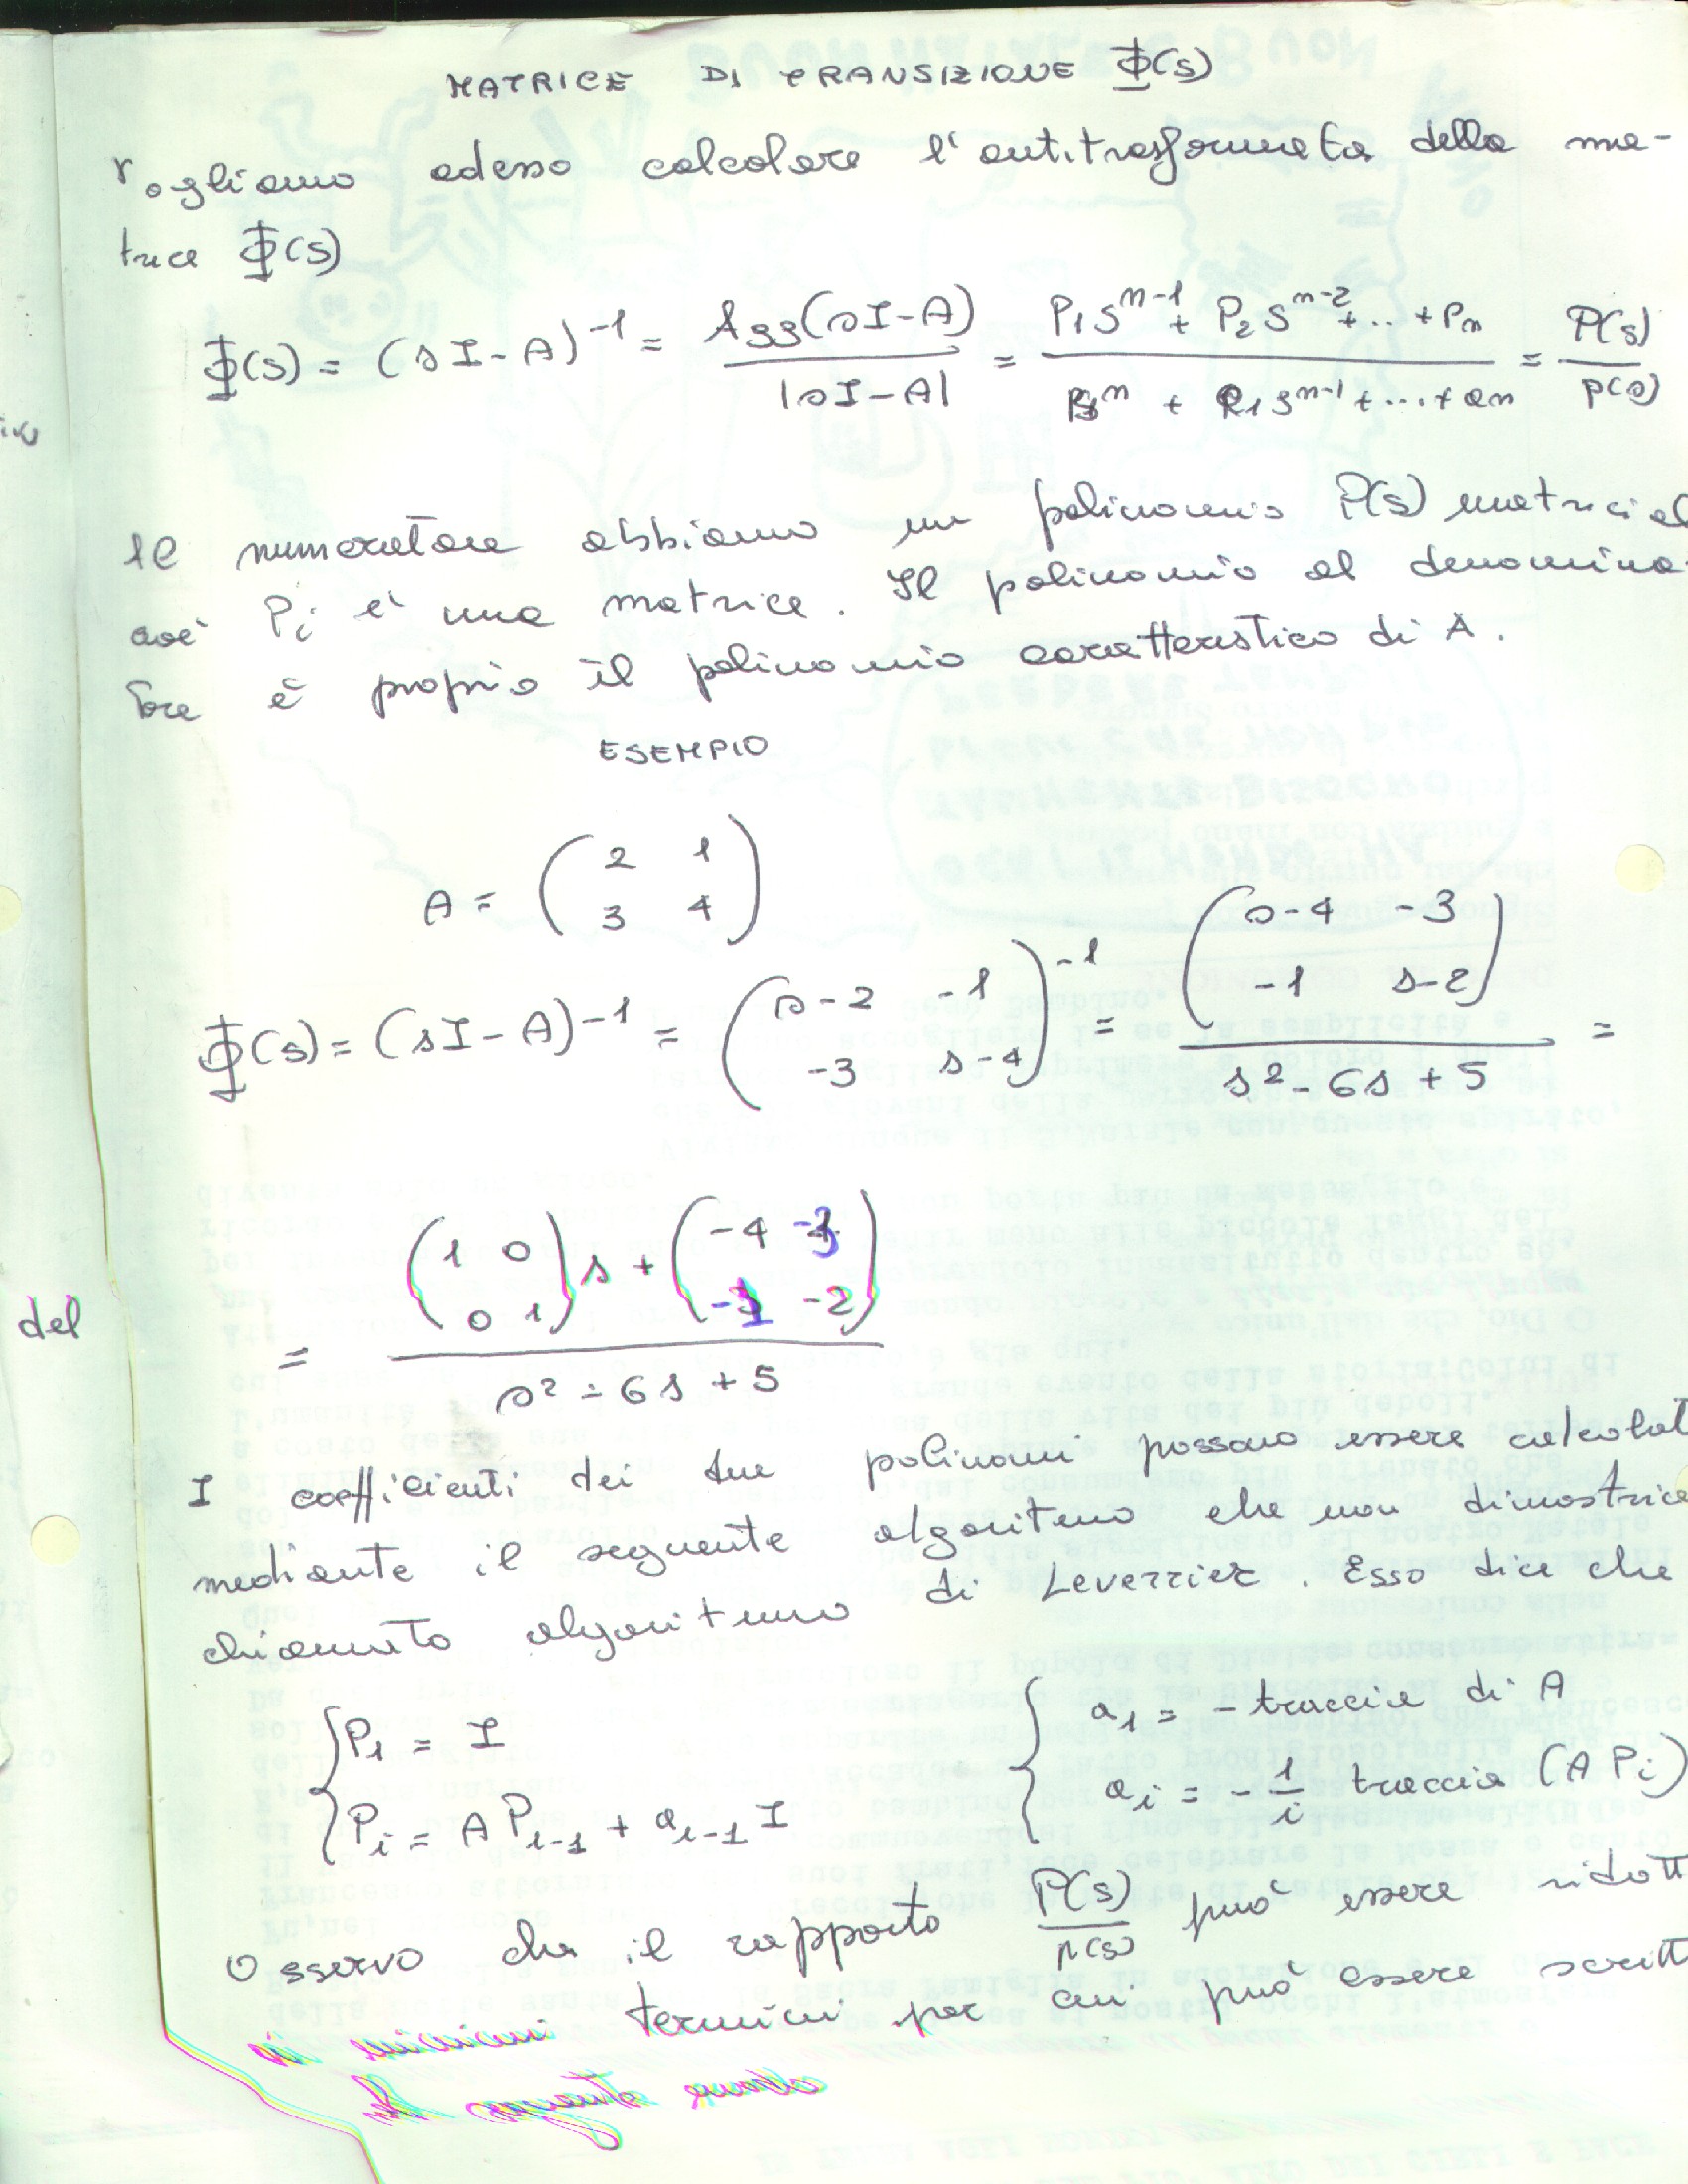 MATRICE DI TRANSIZIONE Φ(s)
Vogliamo adesso calcolare l'antitrasformata della ma-
trice Φ(s)
Φ(s) = (sI-A)⁻¹ = Agg(sI-A) / |sI-A| = (P₁sⁿ⁻¹ + P₂sⁿ⁻² + ... + Pₙ) / (sⁿ + a₁sⁿ⁻¹ + ... + aₙ) = P(s) / p(s)
Al numeratore abbiamo un polinomio P(s) matricial
cioè Pᵢ è una matrice. Il polinomio al denomina-
tore è proprio il polinomio caratteristico di A.
ESEMPIO
A = (2 1; 3 4)
Φ(s) = (sI-A)⁻¹ = (s-2 -1; -3 s-4)⁻¹ = (s-4 -3; -1 s-2) / (s²-6s+5) =
= ((1 0; 0 1)s + (-4 -3; -1 -2)) / (s²-6s+5)
del
I coefficienti dei due polinomi possono essere calcolat
mediante il seguente algoritmo che non dimostrice
chiamato algoritmo di Leverrier. Esso dice che
{ P₁ = I
{ a₁ = - traccia di A
Pᵢ = A Pᵢ₋₁ + aᵢ₋₁ I
aᵢ = - 1/i traccia (A Pᵢ)
Osservo che il rapporto P(s)/p(s) può essere ridott
ai minimi termini per cui può essere scritt
nel seguente modo